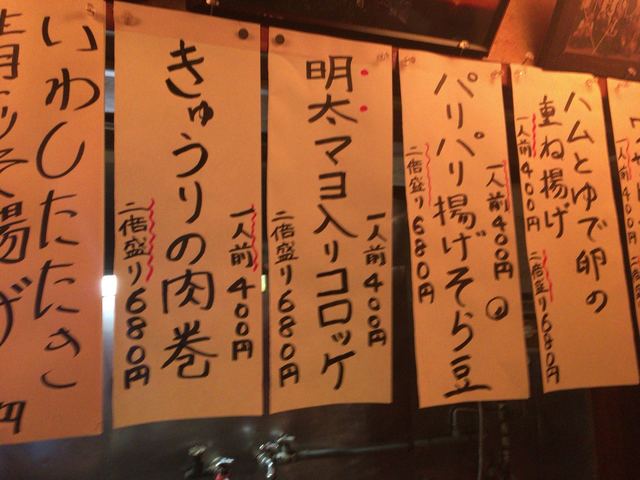 ハムとゆで卵の
重ね揚げ
一人前400円
二倍盛り680円
パリパリ揚げそら豆
一人前400円
二倍盛り680円
明太マヨ入りコロッケ
一人前400円
二倍盛り680円
きゅうりの肉巻
一人前400円
二倍盛り680円
いわしたたき
円